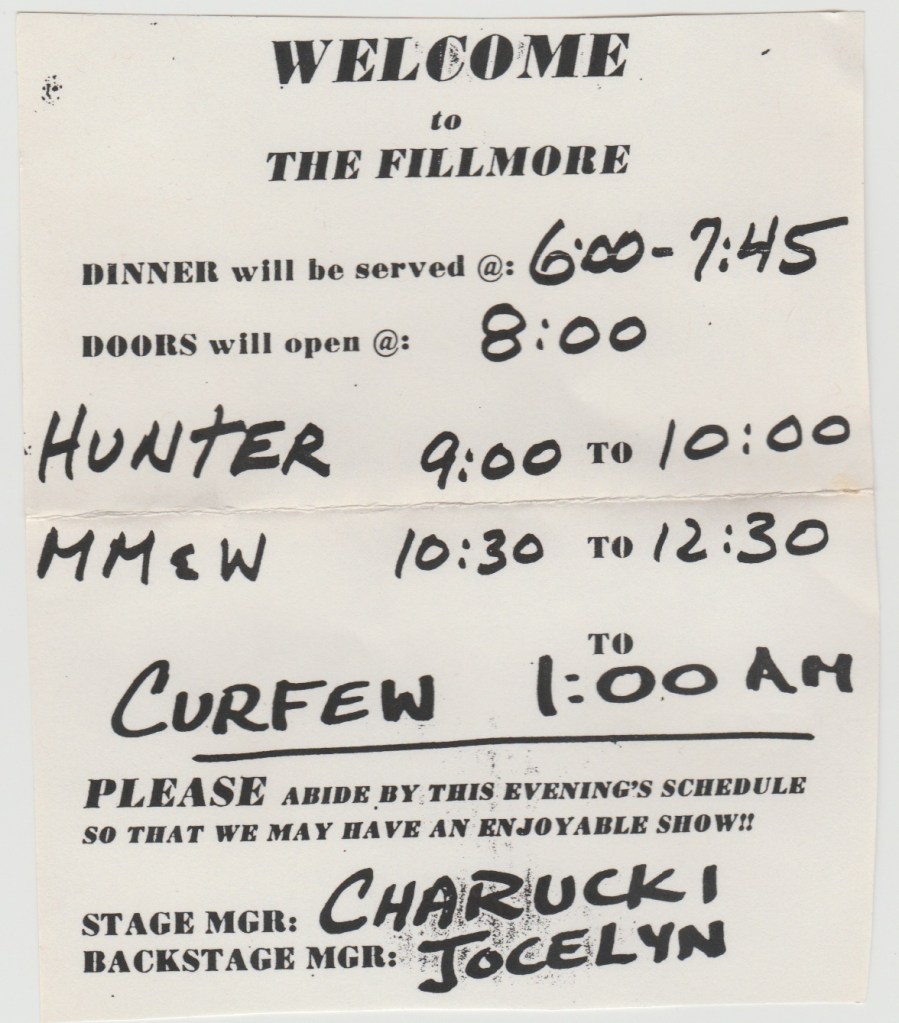 WELCOME
to
THE FILLMORE
DINNER will be served @: 6:00 - 7:45
DOORS will open @: 8:00
HUNTER 9:00 TO 10:00
MM & W 10:30 TO 12:30
TO
CURFEW 1:00 AM
PLEASE ABIDE BY THIS EVENING'S SCHEDULE
SO THAT WE MAY HAVE AN ENJOYABLE SHOW!!
STAGE MGR: CHARUCKI
BACKSTAGE MGR: JOCELYN